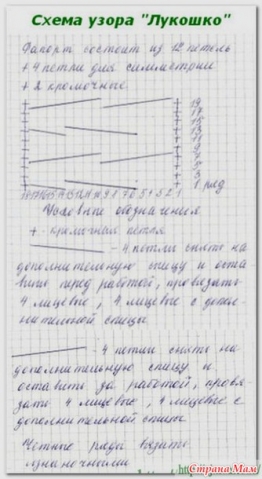 Схема узора "Лукошко"
Рапорт состоит из 12 петель
+ 4 петли для симметрии
+ 2 кромочные
19
17
15
13
11
9
7
5
3
1 ряд
Условные обозначения
+ - кромочная петля
- 4 петли снять на
дополнительную спицу и оста-
вить перед работой, провязать
4 лицевые, 4 лицевые с допол-
нительной спицы
- 4 петли снять на
дополнительную спицу и
оставить за работой, провя-
зать 4 лицевые, 4 лицевые с
дополнительной спицы
Четные ряды вязать
изнаночными
Страна Мам